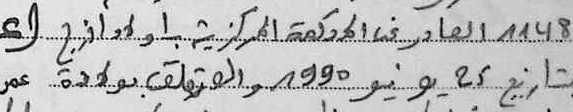 1148 الصادر عن المحكمة المركزية بأولاد افرج
بتاريخ 25 يونيو 1990 والمتعلق بولادة عمر